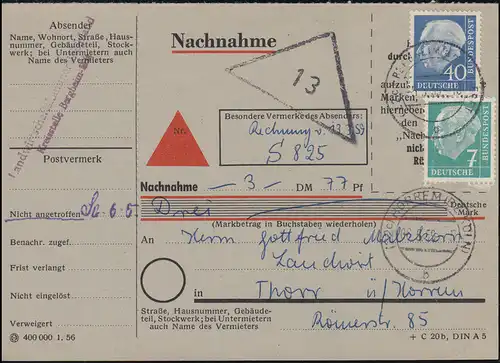 Absender
Name, Wohnort, Straße, Haus-
nummer, Gebäudeteil, Stock-
werk; bei Untermietern auch
Name des Vermieters
Kreisstelle
Postvermerk
Nicht angetroffen
Benachr. zugef.
Frist verlangt
Nicht eingelöst
Verweigert
400 000 1. 56
Nachnahme
13
Besondere Vermerke des Absenders:
Rechnung v. 13.3.59
S 825
Nachnahme — 3 — DM 77 Pf
Drei Deutsche
Mark
(Marktbetrag in Buchstaben wiederholen)
An Herrn Gottfried
Landwirt
in Thorr ü/Horrem
Römerstr. 85
Straße, Hausnummer, Gebäude-
teil, Stockwerk; bei Untermietern
auch Name des Vermieters
+ C 20b, DIN A 5
durch
aufzu
Marken,
hierneben
den
„Nach
nich
Rü
40
DEUTSCHE
BUNDESPOST
7
DEUTSCHE
BUNDESPOST